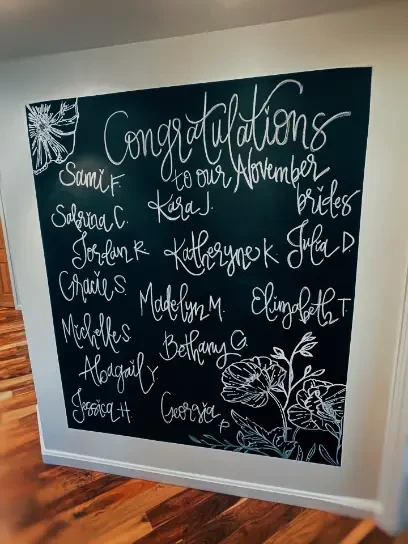 Congratulations
to our November
brides
Sami F.
Kara J.
Sabrina C.
Jordan R
Katheryne K.
Julia D
Gracie S.
Madelyn M.
Elizabeth T.
Michelle S.
Bethany G.
Abagail Y
Jessica H
Georgia P